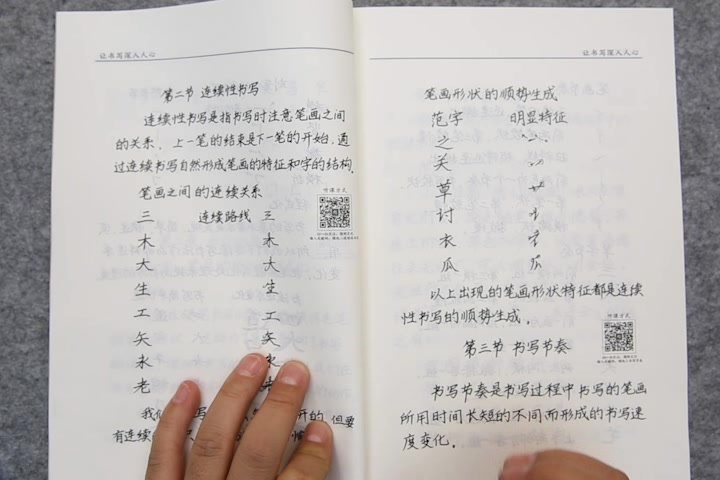 让书写深入人心
第二节 连续性书写
连续性书写是指书写时注意笔画之间
的关系。上一笔的结束是下一笔的开始,通
过连续书写自然形成笔画的特征和字的结构。
笔画之间的连续关系
听课方式
三 连续路线 三
木 木
大 大
生 生
工 工
矢 矢
未
老
我们 写 开的,但要
有连续
让书写深入人心
笔画形状的顺势生成
范字 明显特征
之
关
草
讨
衣
瓜
以上出现的笔画形状特征都是连续
性书写的顺势生成。
听课方式
第三节 书写节奏
书写节奏是书写过程中书写的笔画
所用时间长短的不同而形成的书写速
度变化。